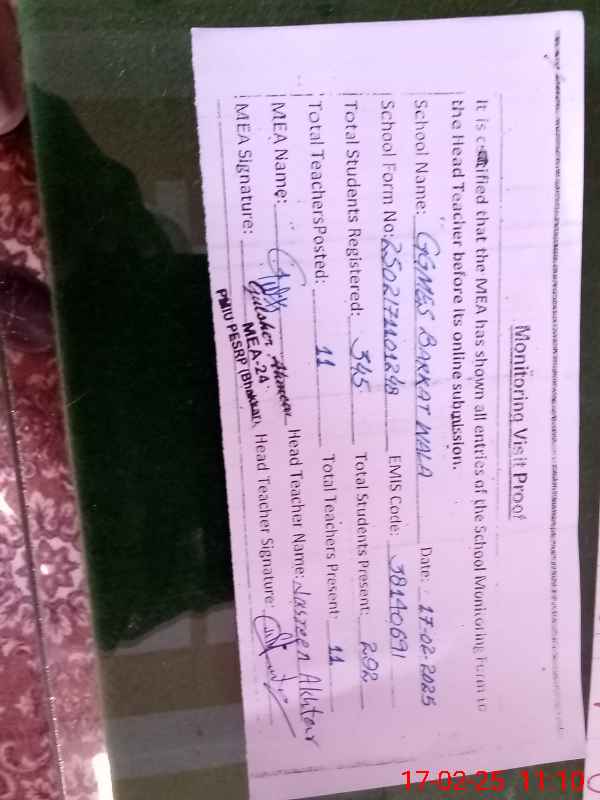 Monitoring Visit Proof
It is certified that the MEA has shown all entries of the School Monitoring Form to
the Head Teacher before its online submission.
School Name: GGMES BARKAT WALA Date: 17-02-2025
School Form No: 2502171101248 EMIS Code: 38140691
Total Students Registered: 345 Total Students Present: 292
Total Teachers Posted: 11 Total Teachers Present: 11
MEA Name: Head Teacher Name: Nasreen Akhtar
MEA Signature: Head Teacher Signature:
MEA-24
PMIU PESRP (Bhakkar)
17-02-25 11:10